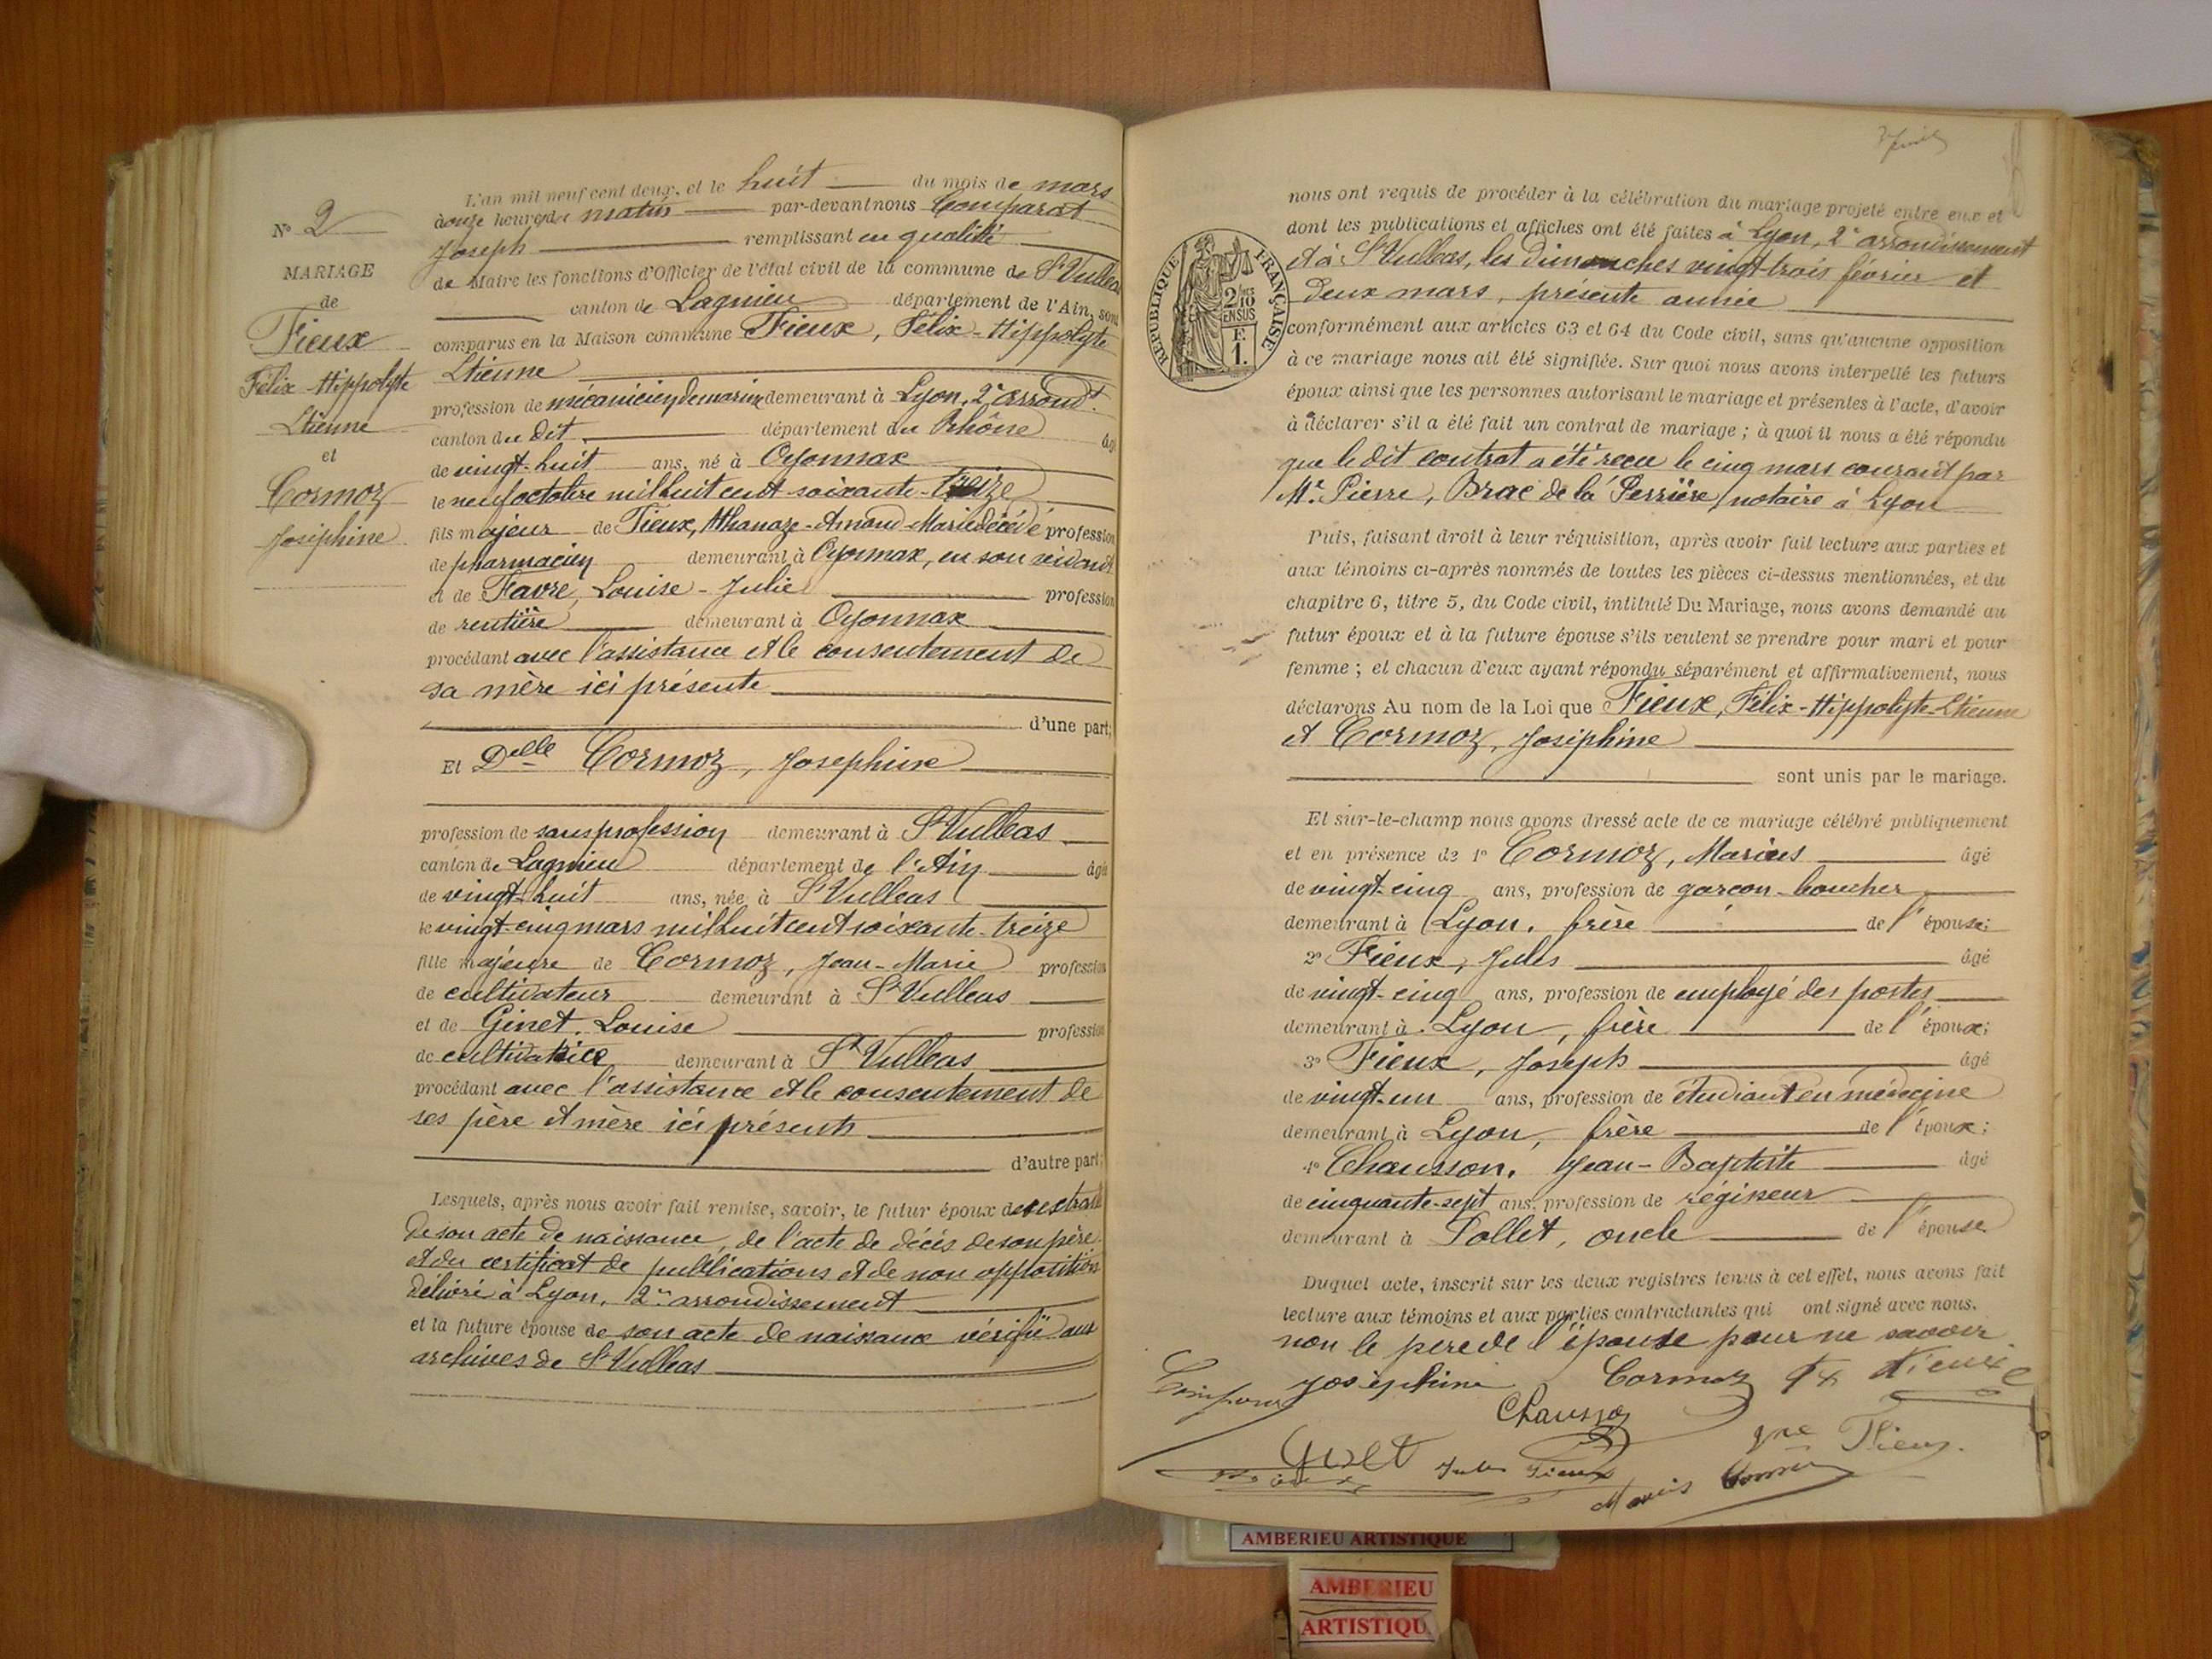 L'an mil neuf cent deux, et le huit du mois de mars
à onze heures de matin par-devant nous Comparat
Joseph remplissant en qualité
de Maire les fonctions d'Officier de l'état civil de la commune de St Vulbas
canton de Lagnieu département de l'Ain, sont
comparus en la Maison commune Fieux, Félix-Hippolyte
Etienne
profession de mécanicien de marine demeurant à Lyon, 2e arrondt.
canton du dit département du Rhône âgé
de vingt-huit ans, né à Oyonnax
le neuf octobre mil huit cent soixante-treize
fils majeur de Fieux, Athanaze-Amand-Marie décédé profession
de pharmacien demeurant à Oyonnax, en son vivant
et de Favre, Louise-Julie profession
de rentière demeurant à Oyonnax
procédant avec l'assistance et le consentement de
sa mère ici présente
d'une part;
Et Delle Cormoz, Josephine
profession de sans profession demeurant à St Vulbas
canton de Lagnieu département de l'Ain âgée
de vingt-huit ans, née à St Vulbas
le vingt-cinq mars mil huit cent soixante-treize
fille majeure de Cormoz, Jean-Marie profession
de cultivateur demeurant à St Vulbas
et de Ginet, Louise profession
de cultivatrice demeurant à St Vulbas
procédant avec l'assistance et le consentement de
ses père et mère ici présents
d'autre part;
Lesquels, après nous avoir fait remise, savoir, le futur époux des extraits
de son acte de naissance, de l'acte de décès de son père
et du certificat de publications et de non opposition
délivré à Lyon, 2me arrondissement
et la future épouse de son acte de naissance vérifié aux
archives de St Vulbas
No 2
MARIAGE
de
Fieux
Félix-Hippolyte
Etienne
et
Cormoz
Joséphine
nous ont requis de procéder à la célébration du mariage projeté entre eux et
dont les publications et affiches ont été faites à Lyon, 2e arrondissement
et à St Vulbas, les dimanches vingt-trois février et
deux mars, présente année
conformément aux articles 63 et 64 du Code civil, sans qu'aucune opposition
à ce mariage nous ait été signifiée. Sur quoi nous avons interpellé les futurs
époux ainsi que les personnes autorisant le mariage et présentes à l'acte, d'avoir
à déclarer s'il a été fait un contrat de mariage ; à quoi il nous a été répondu
que le dit contrat a été reçu le cinq mars courant par
Me Pierre, Brac de la Perrière, notaire à Lyon
Puis, faisant droit à leur réquisition, après avoir fait lecture aux parties et
aux témoins ci-après nommés de toutes les pièces ci-dessus mentionnées, et du
chapitre 6, titre 5, du Code civil, intitulé Du Mariage, nous avons demandé au
futur époux et à la future épouse s'ils veulent se prendre pour mari et pour
femme ; et chacun d'eux ayant répondu séparément et affirmativement, nous
déclarons Au nom de la Loi que Fieux, Félix-Hippolyte-Etienne
et Cormoz, Joséphine
sont unis par le mariage.
Et sur-le-champ nous avons dressé acte de ce mariage célébré publiquement
et en présence de 1o Cormoz, Marius âgé
de vingt-cinq ans, profession de garçon-boucher
demeurant à Lyon, frère de l'épouse;
2o Fieux, Jules âgé
de vingt-cinq ans, profession de employé des postes
demeurant à Lyon, frère de l'époux;
3o Fieux, Joseph âgé
de vingt-un ans, profession de étudiant en médecine
demeurant à Lyon, frère de l'époux;
4o Chausson, Jean-Baptiste âgé
de cinquante-sept ans, profession de régisseur
demeurant à Pollet, oncle de l'épouse
Duquel acte, inscrit sur les deux registres tenus à cet effet, nous avons fait
lecture aux témoins et aux parties contractantes qui ont signé avec nous.
non le père de l'épouse pour ne savoir
Joséphine Cormoz Fx Fieux
Chausson
Jules Fieux
Marius Cormoz
REPUBLIQUE FRANÇAISE
2/10
EN SUS
F.
1.
AMBERIEU ARTISTIQUE
AMBERIEU
ARTISTIQU